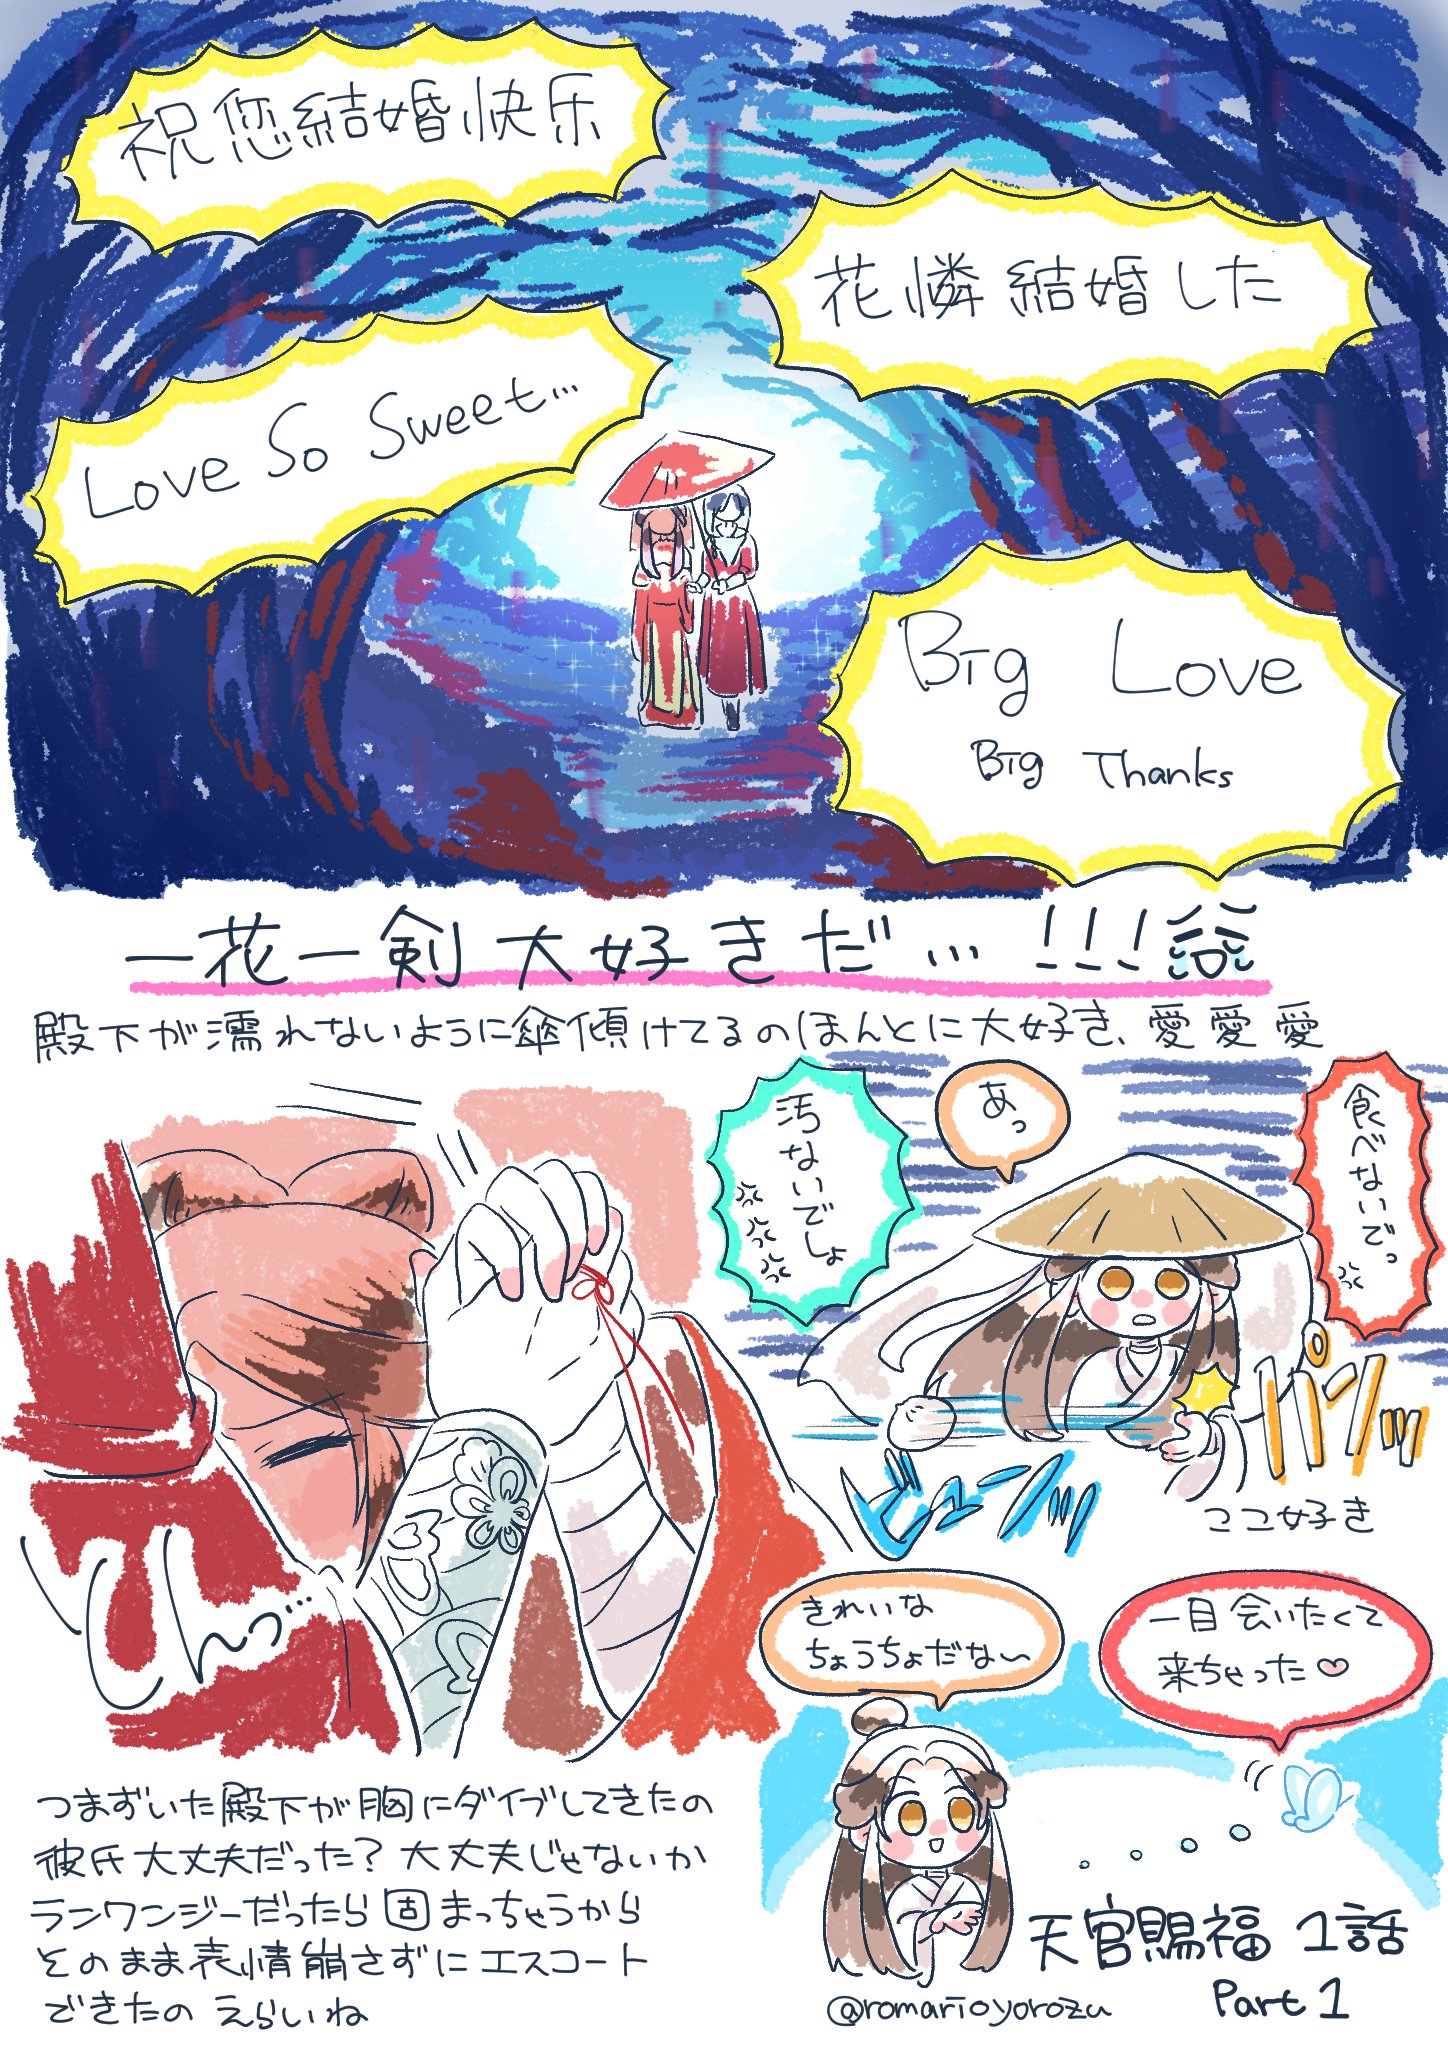 祝您結婚快乐
花憐結婚した
Love So Sweet...
Big Love
Big Thanks
一花一剣大好きだ…!!!
殿下が濡れないように傘傾けてるのほんとに大好き、愛愛愛
食べないでっ
あっ
汚ないでしょ
パシッ
ビューンッ
ここ好き
とんっ…
つまずいた殿下が胸にダイブしてきたの
彼氏大丈夫だった?大丈夫じゃないか
ランワンジーだったら固まっちゃうから
そのまま表情崩さずにエスコート
できたの えらいね
一目会いたくて
来ちゃった♡
きれいな
ちょうちょだな〜
天官賜福 1話
Part 1
@romarioyorozu